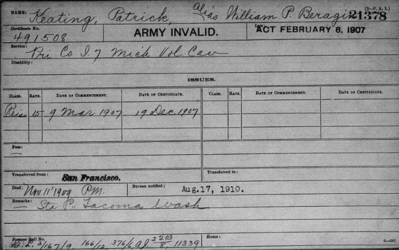 Name:
Keating, Patrick, alias William P. Beragin
21378
Certificate No.
491508
ARMY INVALID.
ACT FEBRUARY 6, 1907
Service:
Pri Co I 7 Mich Vol Cav
Disability:
ISSUES.
CLASS. RATE. DATE OF COMMENCEMENT. DATE OF CERTIFICATE. CLASS. RATE. DATE OF COMMENCEMENT. DATE OF CERTIFICATE.
15 9 Mar 1907 19 Dec. 1907
Fees:
Transferred from: San Francisco, Transferred to:
Died: Nov 11 1909 P.M. Bureau notified: Aug. 17, 1910.
Remarks:
Tacoma Wash
11339